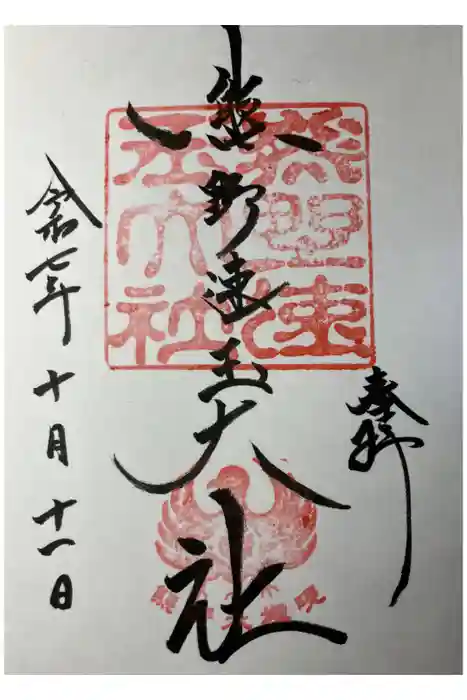 奉拝
熊野速玉大社
熊野速玉大社
令和七年十月十一日